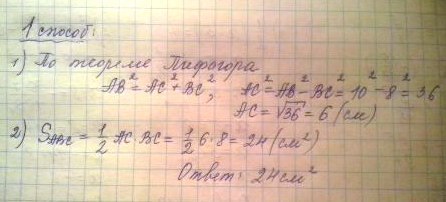 1 способ:
1) По теореме Пифагора
AB² = AC² + BC², AC² = AB² - BC² = 10² - 8² = 36
AC = √36 = 6 (см)
2) S_ABC = 1/2 AC · BC = 1/2 6 · 8 = 24 (см²)
Ответ: 24 см²